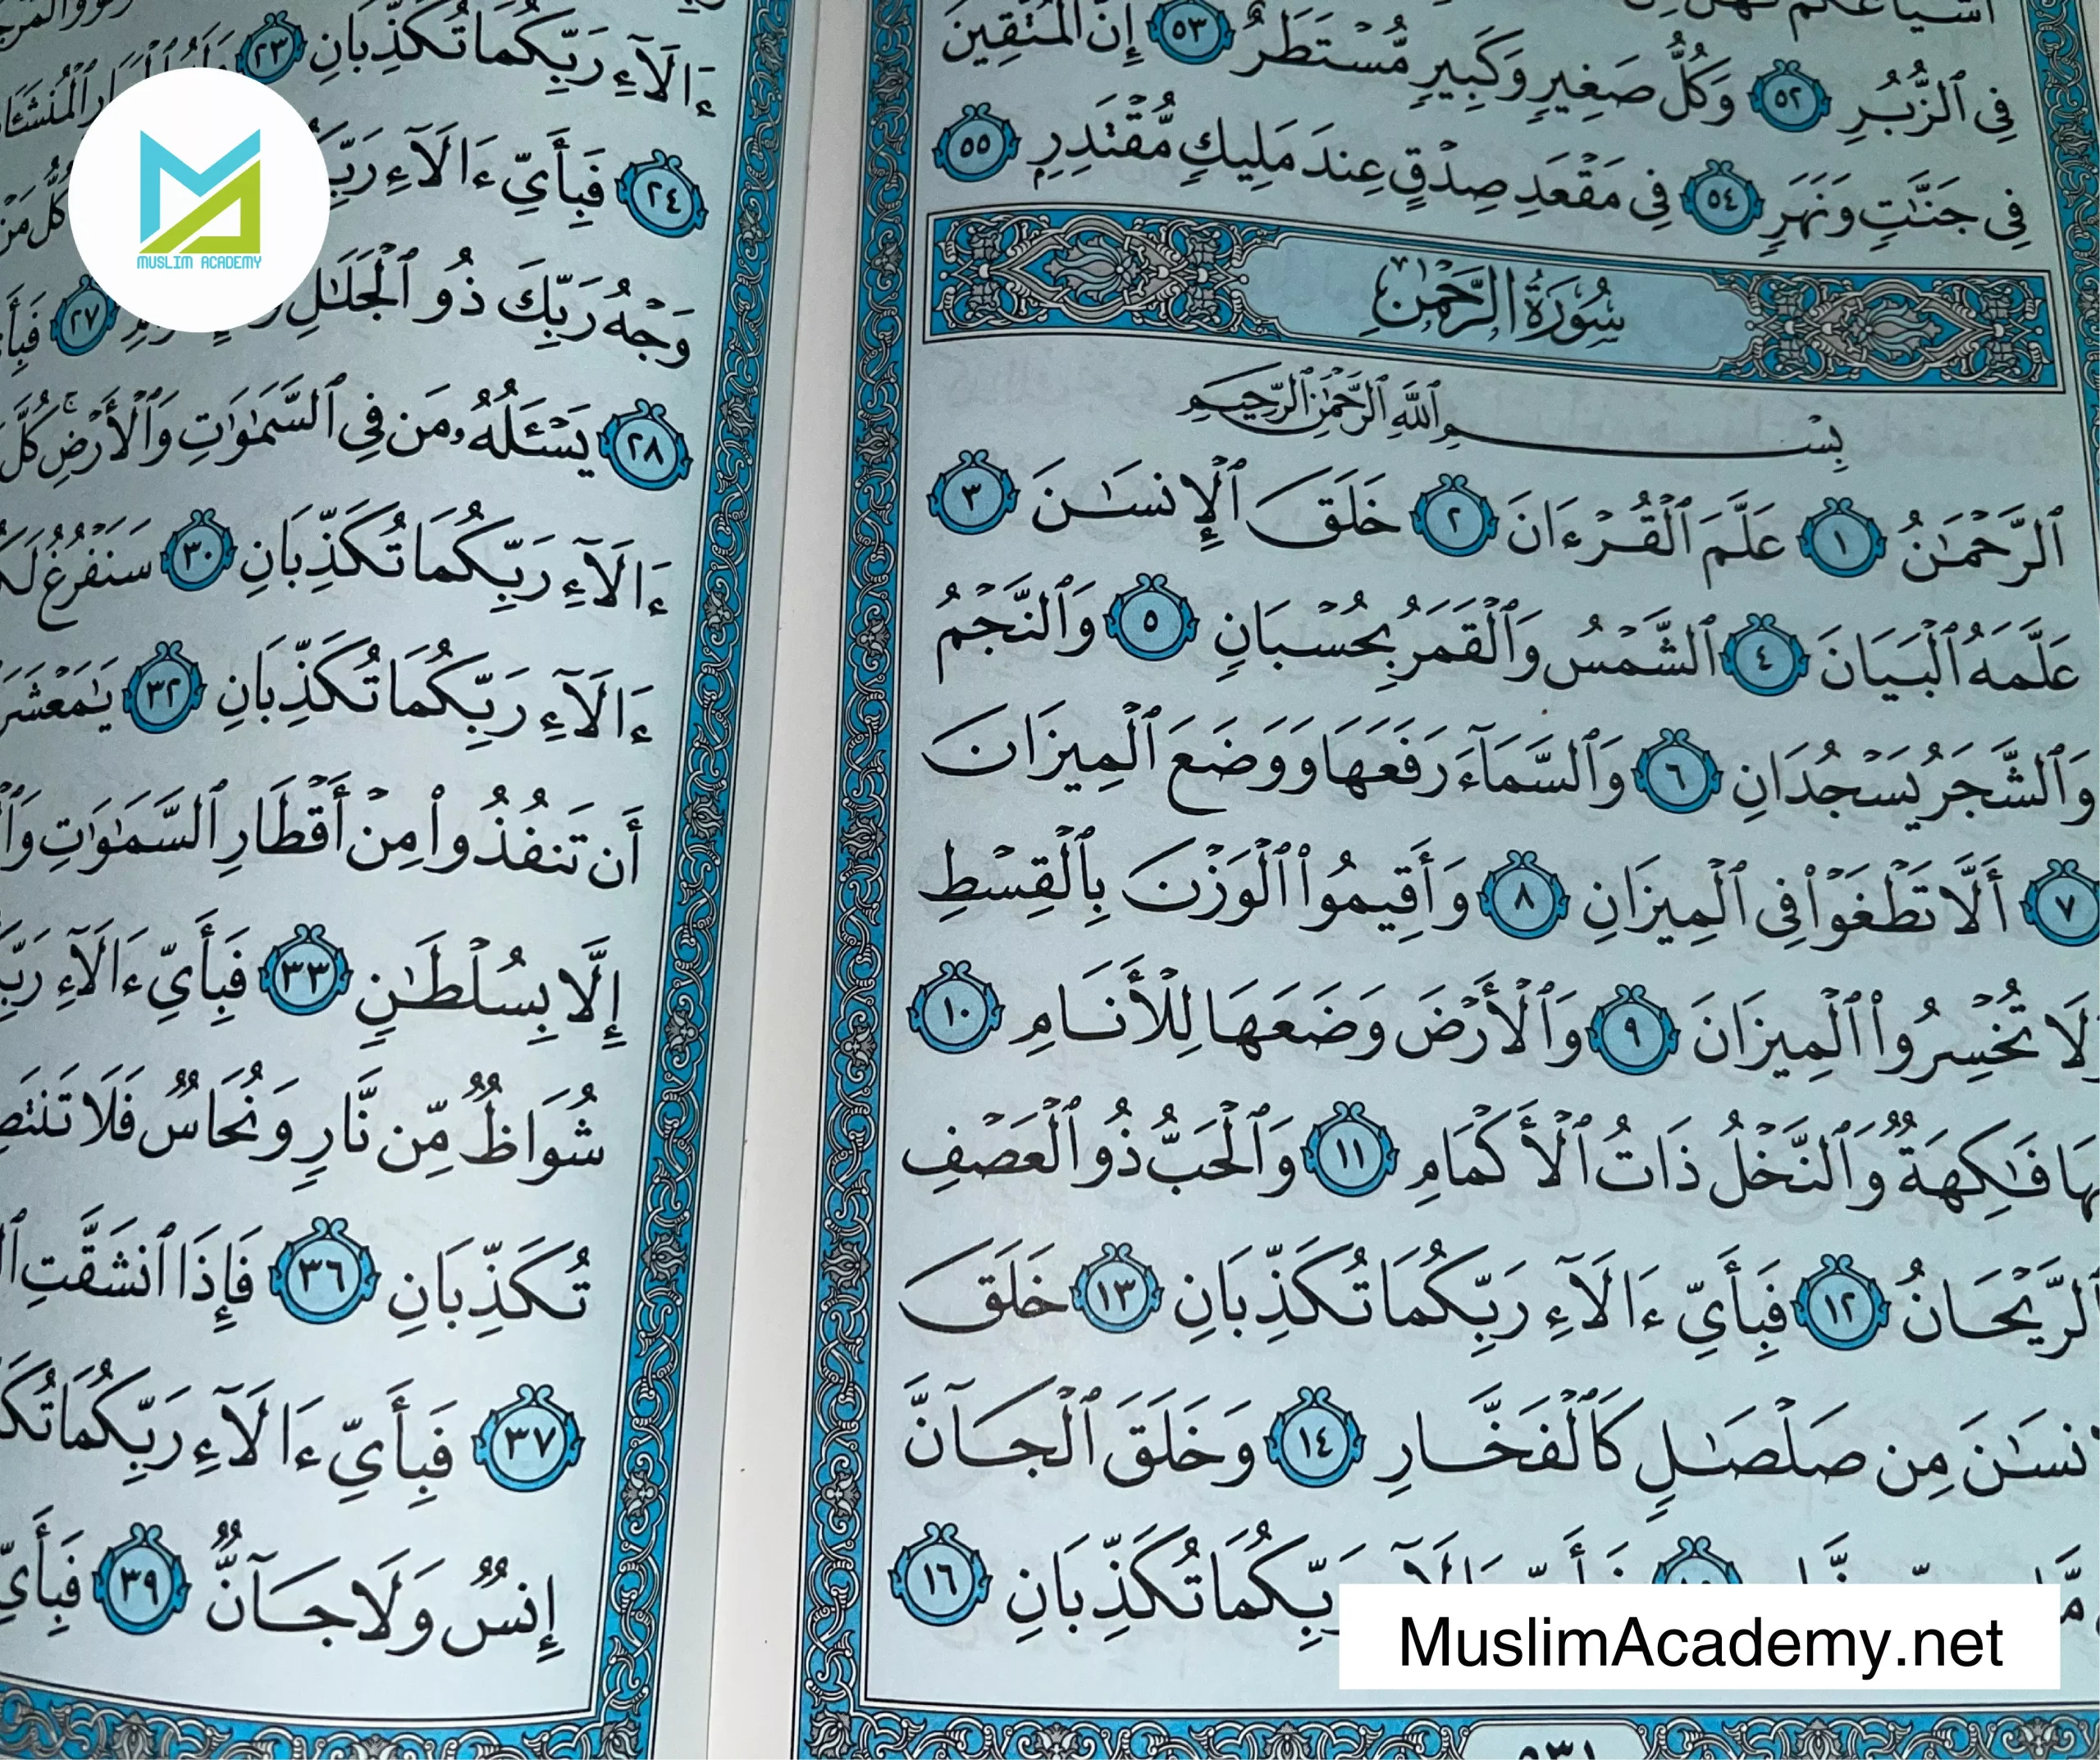 فِي ٱلزُّبُرِ ٥٢ وَكُلُّ صَغِيرٍ وَكَبِيرٍ مُّسۡتَطَرٌ ٥٣ إِنَّ ٱلۡمُتَّقِينَ
فِي جَنَّٰتٖ وَنَهَرٖ ٥٤ فِي مَقۡعَدِ صِدۡقٍ عِندَ مَلِيكٖ مُّقۡتَدِرِۭ ٥٥
سُورَةُ الرَّحۡمَٰنِ
بِسۡمِ ٱللَّهِ ٱلرَّحۡمَٰنِ ٱلرَّحِيمِ
ٱلرَّحۡمَٰنُ ١ عَلَّمَ ٱلۡقُرۡءَانَ ٢ خَلَقَ ٱلۡإِنسَٰنَ ٣
عَلَّمَهُ ٱلۡبَيَانَ ٤ ٱلشَّمۡسُ وَٱلۡقَمَرُ بِحُسۡبَانٖ ٥ وَٱلنَّجۡمُ
وَٱلشَّجَرُ يَسۡجُدَانِ ٦ وَٱلسَّمَآءَ رَفَعَهَا وَوَضَعَ ٱلۡمِيزَانَ
٧ أَلَّا تَطۡغَوۡاْ فِي ٱلۡمِيزَانِ ٨ وَأَقِيمُواْ ٱلۡوَزۡنَ بِٱلۡقِسۡطِ
لَا تُخۡسِرُواْ ٱلۡمِيزَانَ ٩ وَٱلۡأَرۡضَ وَضَعَهَا لِلۡأَنَامِ ١٠
فَٰكِهَةٞ وَٱلنَّخۡلُ ذَاتُ ٱلۡأَكۡمَامِ ١١ وَٱلۡحَبُّ ذُو ٱلۡعَصۡفِ
ٱلرَّيۡحَانُ ١٢ فَبِأَيِّ ءَالَآءِ رَبِّكُمَا تُكَذِّبَانِ ١٣ خَلَقَ
نسَٰنَ مِن صَلۡصَٰلٖ كَٱلۡفَخَّارِ ١٤ وَخَلَقَ ٱلۡجَآنَّ
رَبِّكُمَا تُكَذِّبَانِ ١٦
ءَالَآءِ رَبِّكُمَا تُكَذِّبَانِ ٢٣
٢٤ فَبِأَيِّ ءَالَآءِ
وَجۡهُ رَبِّكَ ذُو ٱلۡجَلَٰلِ ٢٧
٢٨ يَسۡـَٔلُهُۥ مَن فِي ٱلسَّمَٰوَٰتِ وَٱلۡأَرۡضِۚ كُلَّ
ءَالَآءِ رَبِّكُمَا تُكَذِّبَانِ ٣٠ سَنَفۡرُغُ
ءَالَآءِ رَبِّكُمَا تُكَذِّبَانِ ٣٢ يَٰمَعۡشَرَ
أَن تَنفُذُواْ مِنۡ أَقۡطَارِ ٱلسَّمَٰوَٰتِ
إِلَّا بِسُلۡطَٰنٖ ٣٣ فَبِأَيِّ ءَالَآءِ
شُوَاظٞ مِّن نَّارٖ وَنُحَاسٞ فَلَا
تُكَذِّبَانِ ٣٦ فَإِذَا ٱنشَقَّتِ
٣٧ فَبِأَيِّ ءَالَآءِ رَبِّكُمَا
إِنسٞ وَلَا جَآنّٞ ٣٩ فَبِأَيِّ
MUSLIM ACADEMY
MuslimAcademy.net